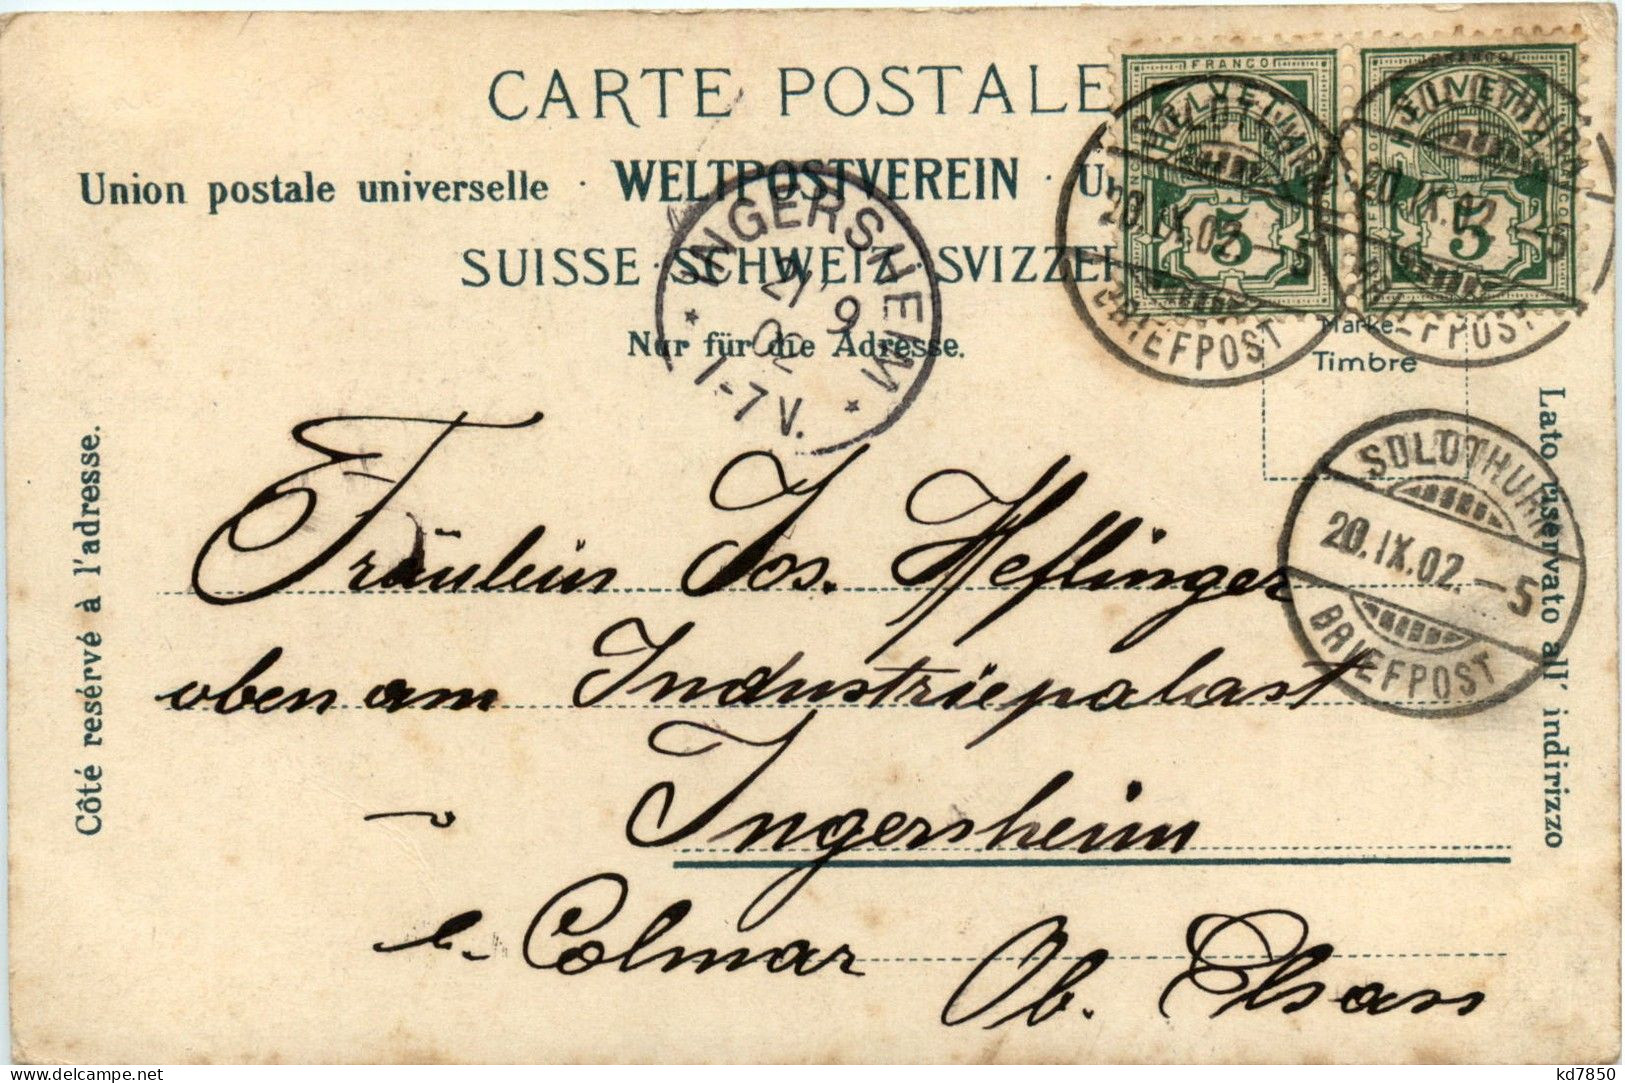 CARTE POSTALE
Union postale universelle · WELTPOSTVEREIN · U
SUISSE · SCHWEIZ · SVIZZE
Nur für die Adresse.
FRANCO
HELVETIA
5
HELVETIA
5
SOLOTHURN
20.IX.02.-5
BRIEFPOST
SOLOTHURN
20.IX.02.-5
BRIEFPOST
INGERSHEIM
21 9
02
1-7 V.
Marke.
Timbre
SOLOTHURN
20.IX.02.-5
BRIEFPOST
Côté resérvé à l'adresse.
Lato riservato all' indirizzo
Fräulein Jos. Heflinger
oben am Industriepalast
Ingersheim
b. Colmar Ob. Elsass
kd7850